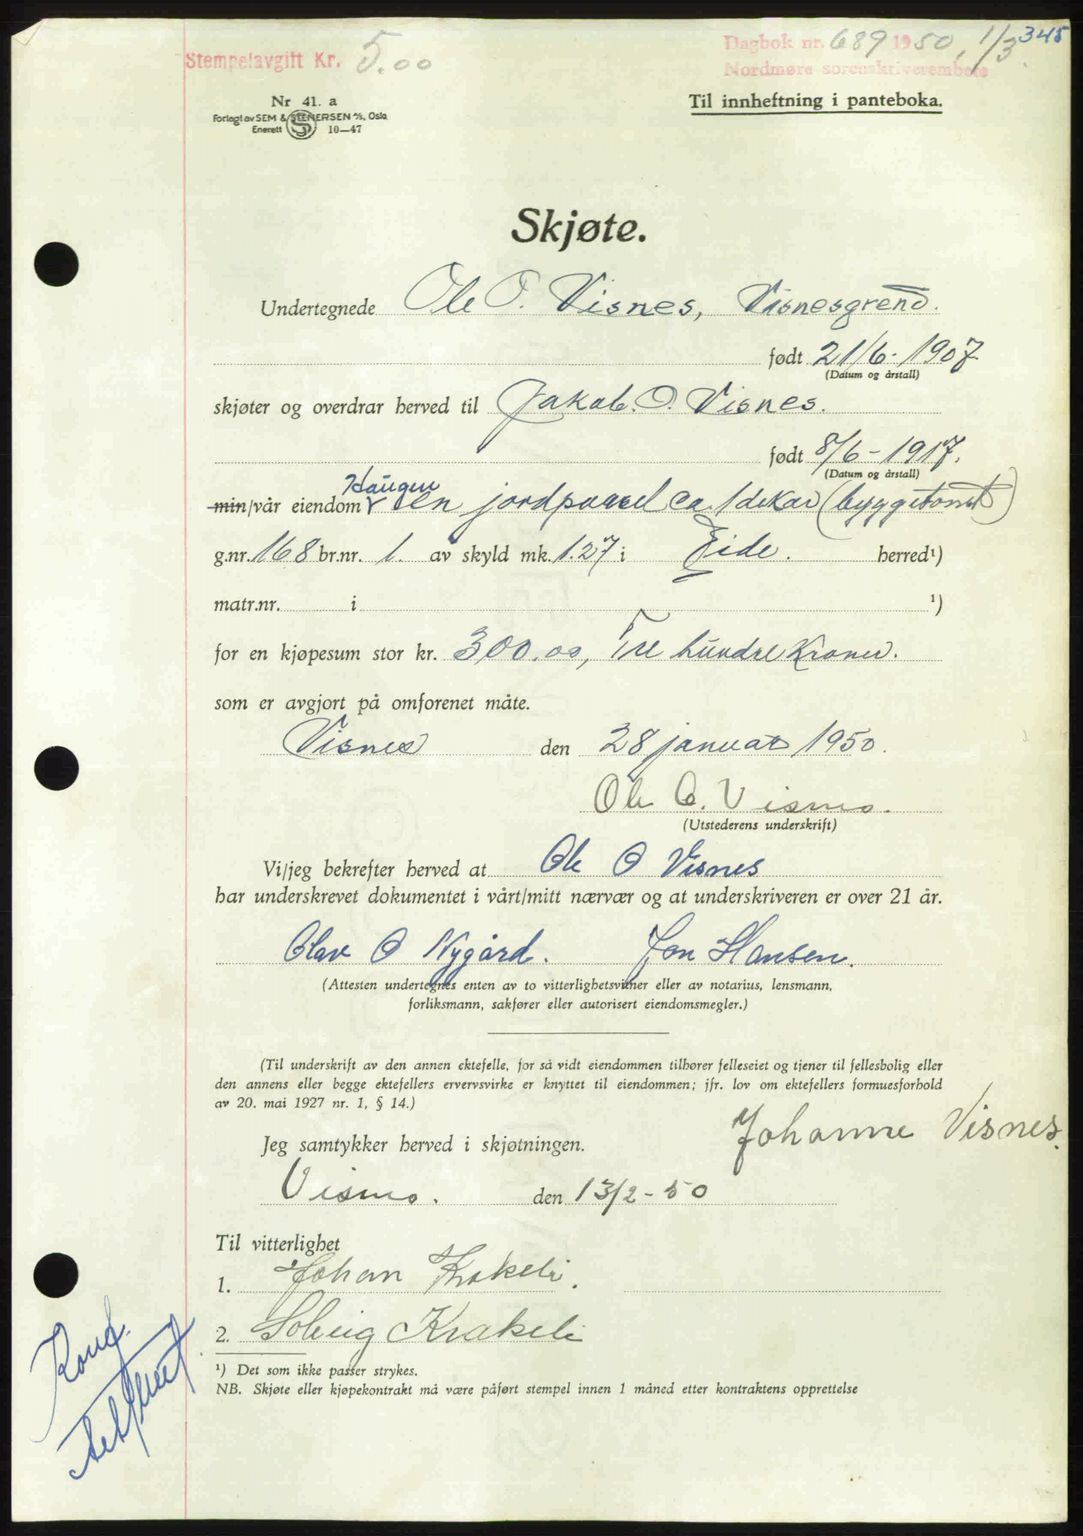 Stempelavgitt Kr. 5.00
Dagbok nr. 689 1950, 1/3 345
Nordmøre sorenskriverembete
Nr 41. a
Forlagt av SEM & STENERSEN A/S, Oslo
Enerett S 10—47
Til innheftning i panteboka.
Skjøte.
Undertegnede Ole O. Visnes, Visnesgrend.
født 21/6-1907
(Datum og årstall)
skjøter og overdrar herved til Jakob. O. Visnes.
født 8/6-1917.
(Datum og årstall)
Haugen
min/vår eiendom en jordparsel ca 1 dekar (byggetomt)
g.nr. 168 br.nr. 1. av skyld mk. 1.27 i Eide. herred¹)
matr.nr. i ¹)
for en kjøpesum stor kr. 300.00, Tre hundre kroner.
som er avgjort på omforenet måte.
Visnes den 28 januar 1950.
Ole O. Visnes.
(Utstederens underskrift)
Vi/jeg bekrefter herved at Ole O Visnes
har underskrevet dokumentet i vårt/mitt nærvær og at underskriveren er over 21 år.
Olav O Nygård. Jon Hansen.
(Attesten undertegnes enten av to vitterlighetsvitner eller av notarius, lensmann,
forliksmann, sakfører eller autorisert eiendomsmegler.)
(Til underskrift av den annen ektefelle, for så vidt eiendommen tilhører felleseiet og tjener til fellesbolig eller
den annens eller begge ektefellers ervervsvirke er knyttet til eiendommen; jfr. lov om ektefellers formuesforhold
av 20. mai 1927 nr. 1, § 14.)
Johanne Visnes.
Jeg samtykker herved i skjøtningen.
Visnes. den 13/2-50
Til vitterlighet
1. Johan Krakeli.
2. Solveig Krakeli
¹) Det som ikke passer strykes.
NB. Skjøte eller kjøpekontrakt må være påført stempel innen 1 måned etter kontraktens opprettelse